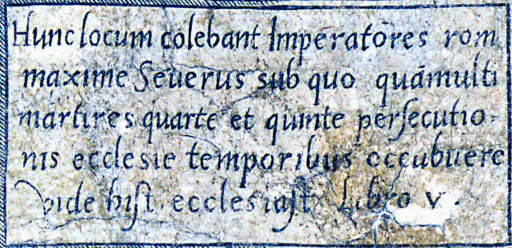 Hunc locum colebant Imperatores rom
maxime Seuerus sub quo quāmulti
mártires quarte et quinte persecutio-
nis ecclesie temporibus occubuere
vide hist. ecclesiast Libro v.